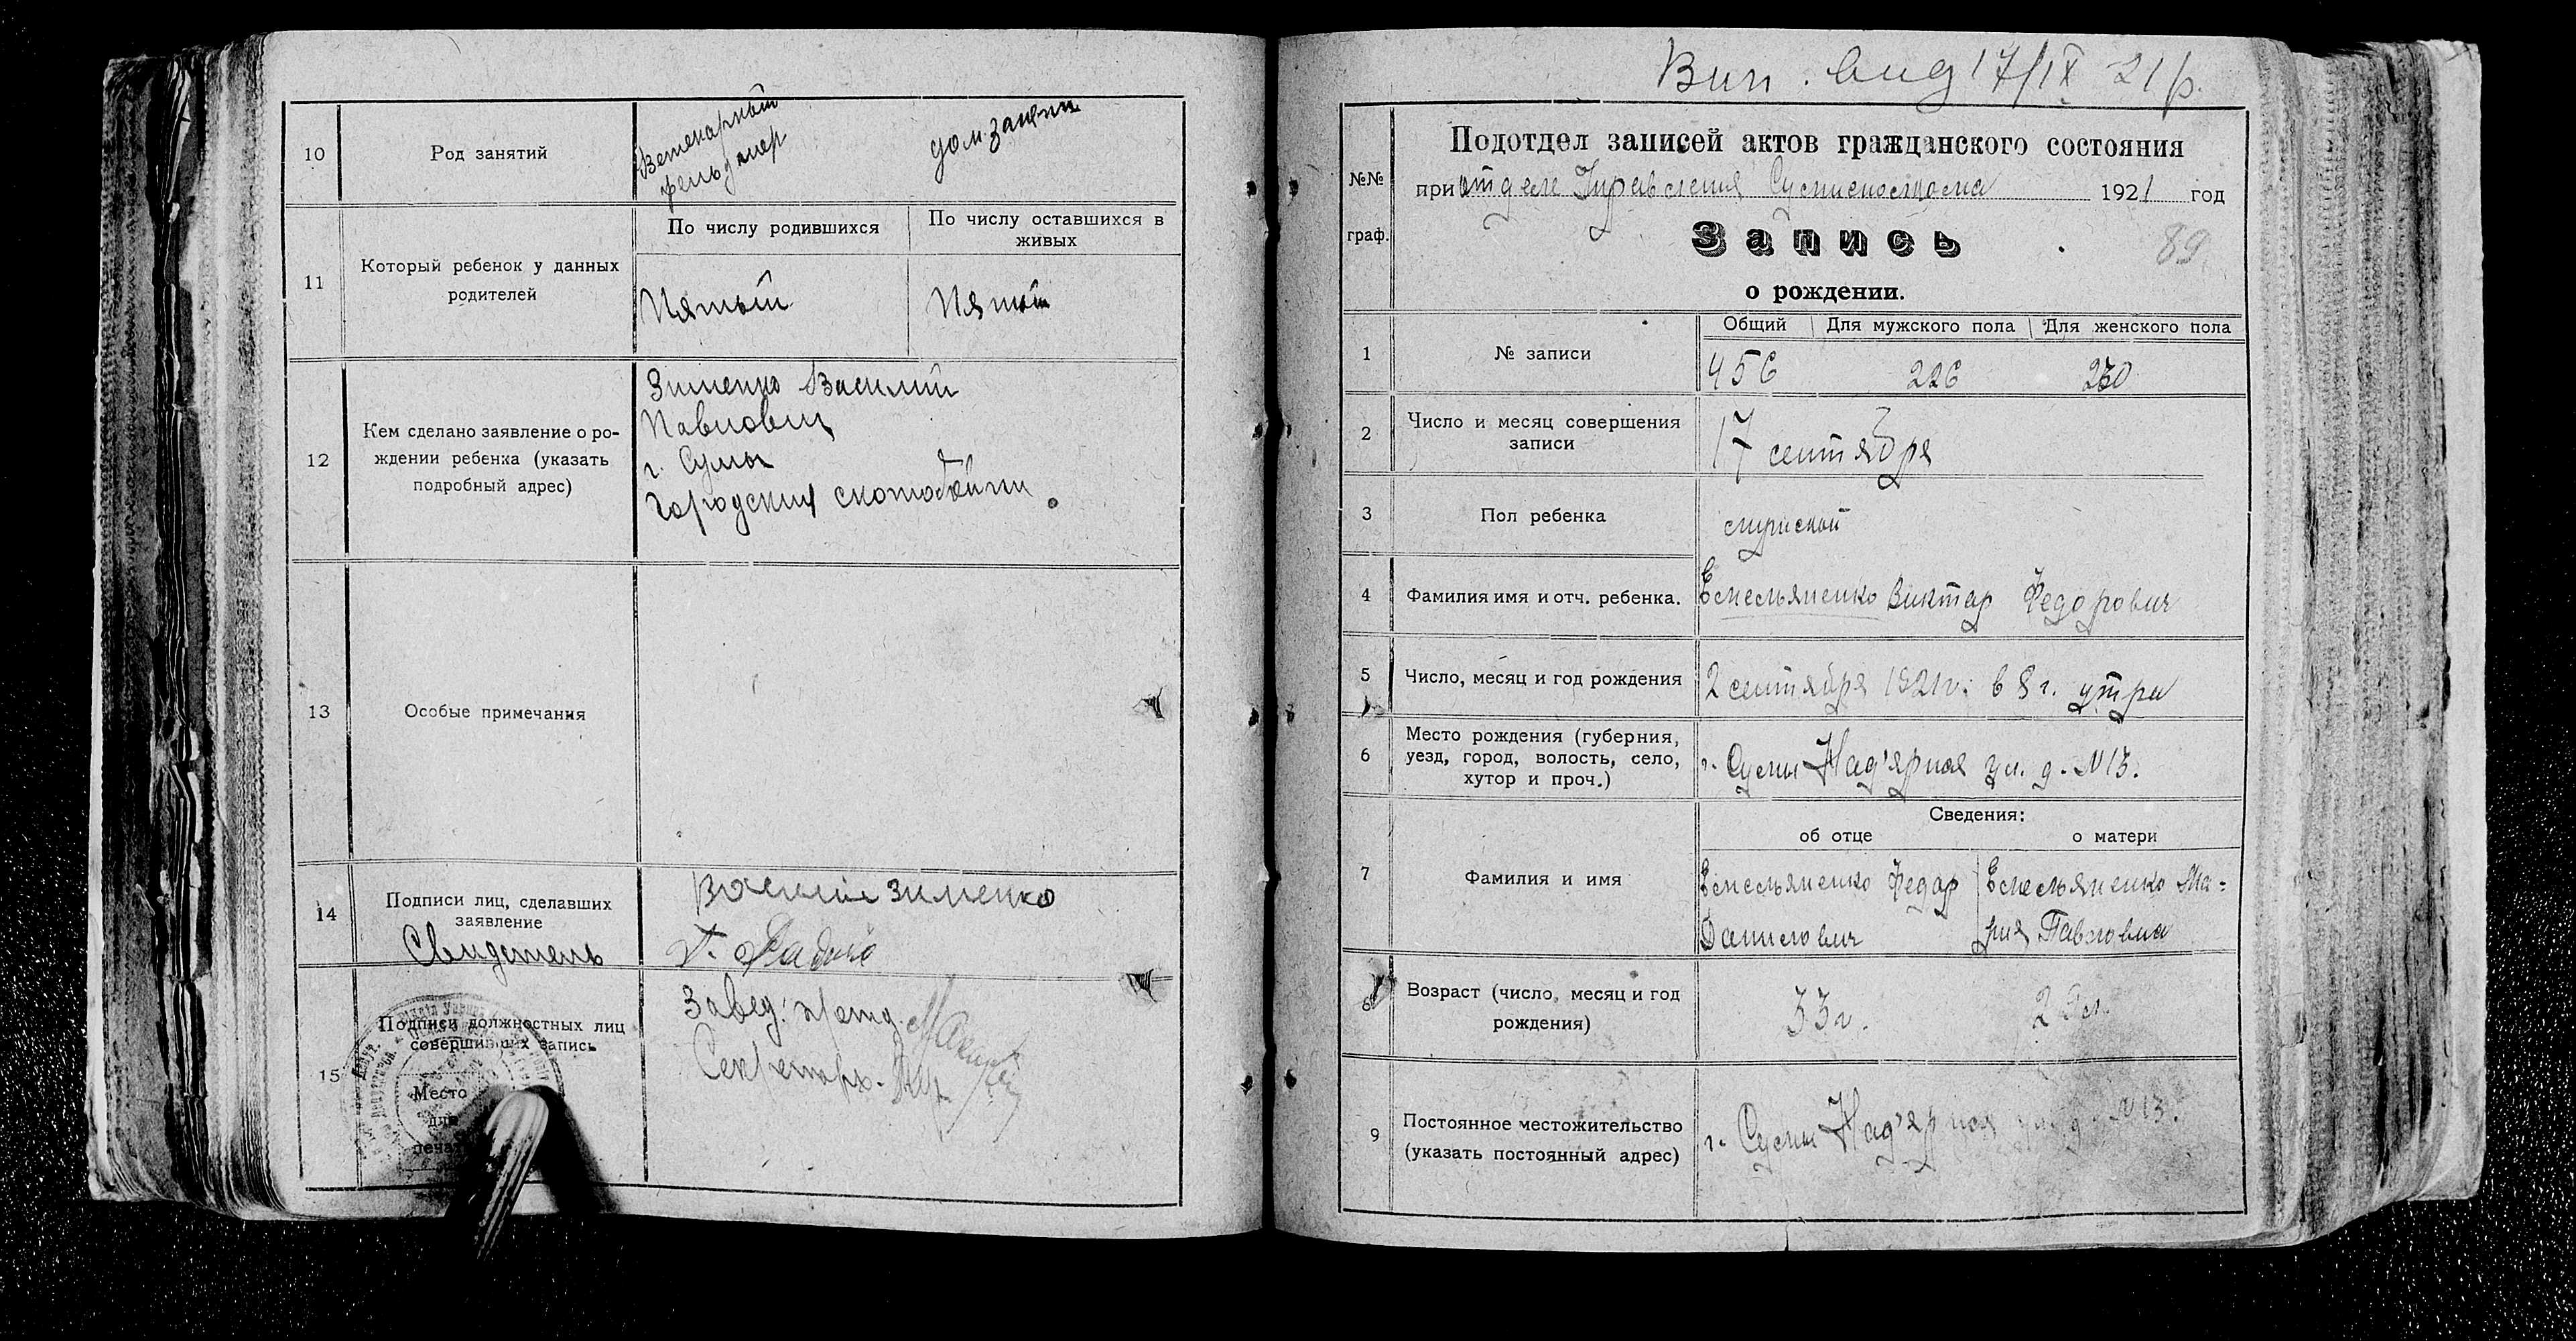 10
Род занятий
Ветенарный фельдшер
дом. занят
11
Который ребенок у данных
родителей
По числу родившихся
По числу оставшихся в
живых
Пятый
Пятый
12
Кем сделано заявление о ро-
ждении ребенка (указать
подробный адрес)
Зименко Василий
Павлович
г. Сумы
Городския скотобойни
13
Особые примечания
14
Подписи лиц, сделавших
заявление
Свидетель
Василий Зименко
15
Подписи должностных лиц
совершивших запись
Место
для
печати
Завед.
Секретарь
Вип. вид 17/IX 21 р.
№№
граф.
Подотдел записей актов гражданского состояния
при отделе Управления 1921 год
Запись
89
о рождении.
1
№ записи
Общий
Для мужского пола
Для женского пола
456
226
230
2
Число и месяц совершения
записи
17 сентября
3
Пол ребенка
мужской
4
Фамилия имя и отч. ребенка.
Емельяненко Виктар Федорович
5
Число, месяц и год рождения
2 сентября 1921 г. в 8 г. утра
6
Место рождения (губерния,
уезд, город, волость, село,
хутор и проч.)
г. Сумы Над'ярная ул. д. N 13.
Сведения:
об отце
о матери
7
Фамилия и имя
Емельяненко Федар
Данилович
Емельяненко Ма-
рия Павловна
8
Возраст (число, месяц и год
рождения)
33 г.
9
Постоянное местожительство
(указать постоянный адрес)
г. Сумы Над'ярная ул. д. N 13.